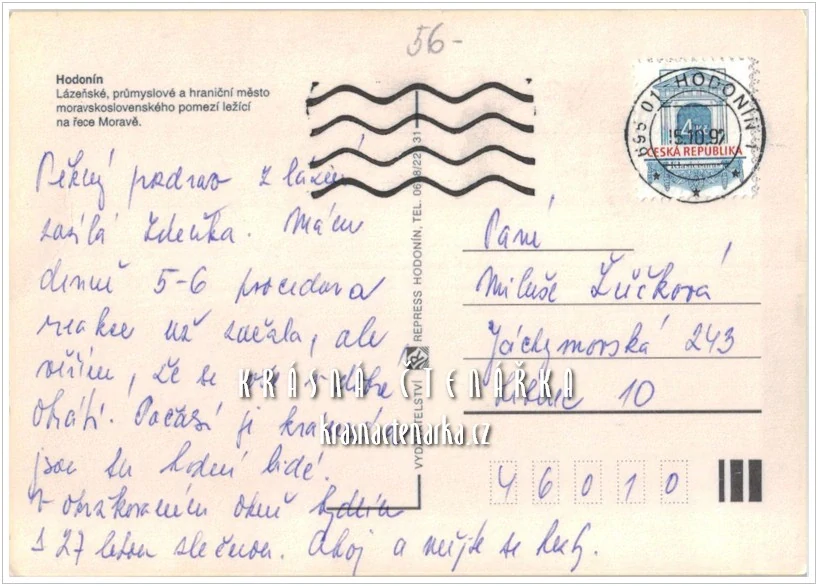 56-
Hodonín
Lázeňské, průmyslové a hraniční město
moravskoslovenského pomezí ležící
na řece Moravě.
695 01 HODONÍN 1
15.10.92
4 Kčs
ČESKÁ REPUBLIKA
Pěkný pozdrav z lázní
zasílá Zdeňka. Mám
denně 5-6 procedur a
reakce už začala, ale
věřím, že se vše v dobré
obrátí. Počasí je krásné a
jsou tu hodní lidé.
V obrázkovaném okně bydlím
s 27 letou slečnou. Ahoj a mějte se hezky.
VYDAVATELSTVÍ REPRESS HODONÍN, TEL. 0628/22 31
Paní
Miluše Žůčková
Jáchymovská 243
Liberec 10
46010
KRÁSNÁ ČTENÁŘKA
krasnactenarka.cz